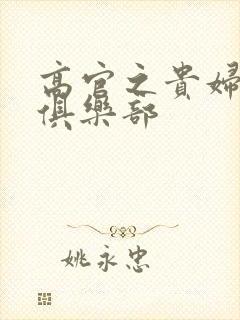 高官之貴婦
俱樂部
姚永忠